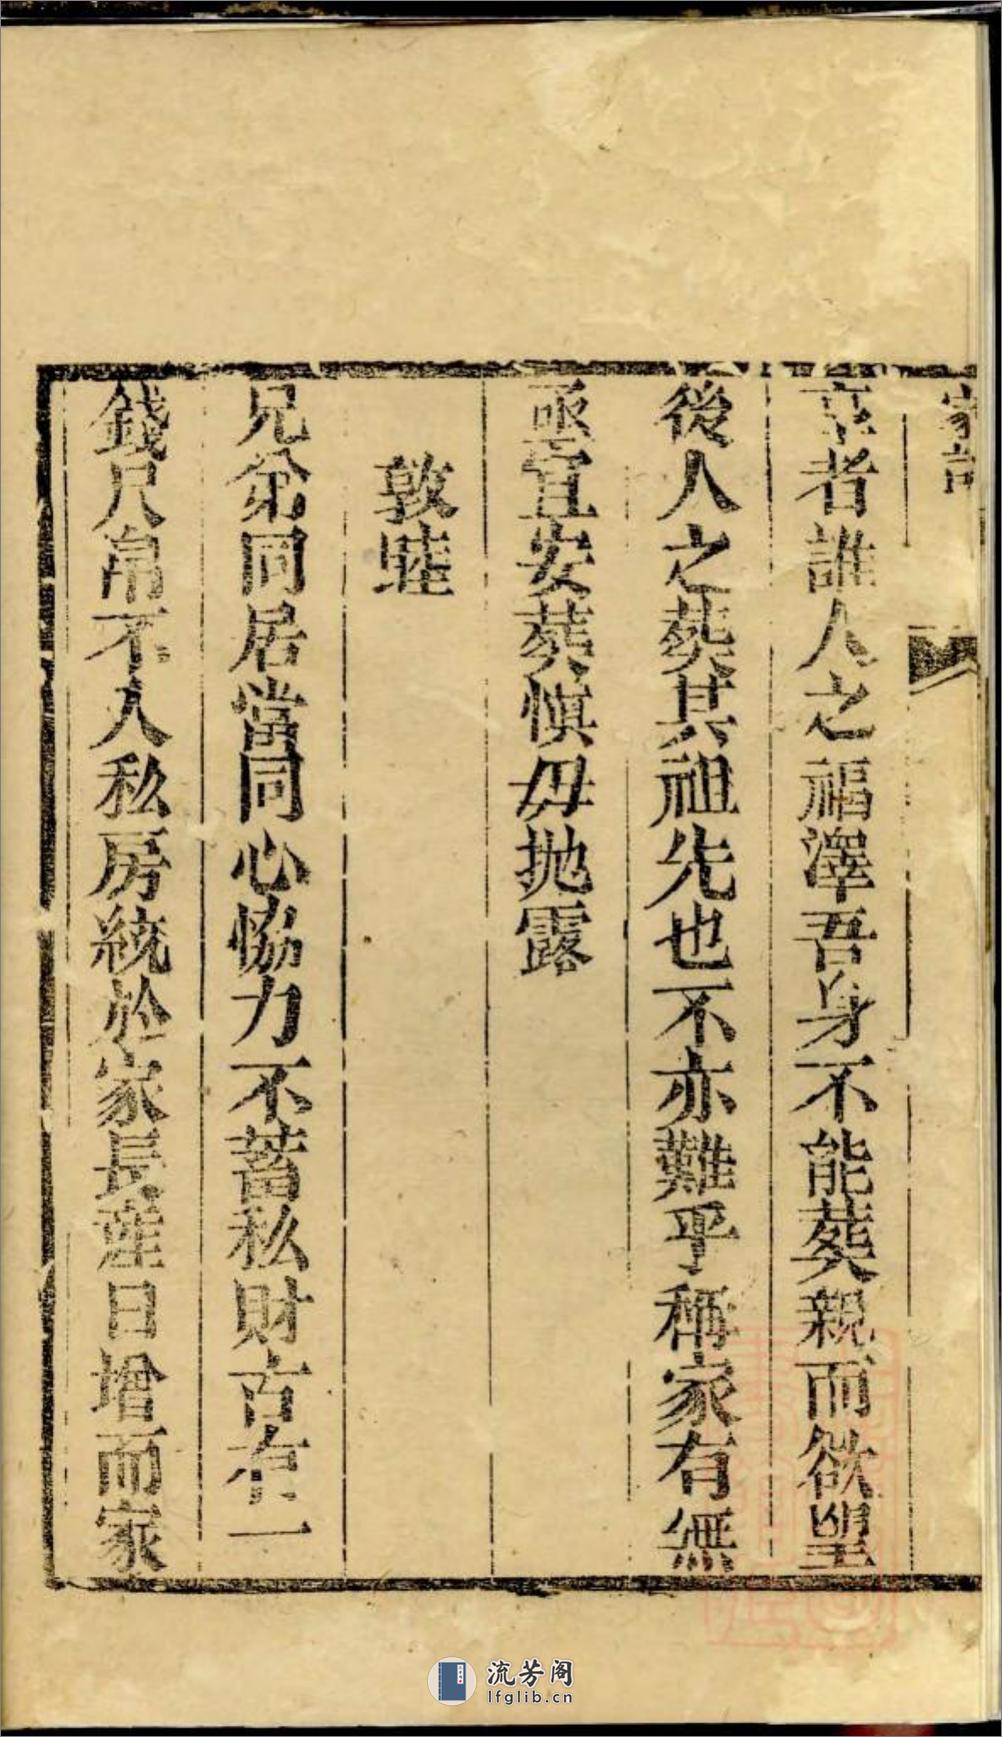 家訓
享者誰人之福澤吾身不能葬親而欲望
後人之葬其祖先也不亦難乎稱家有無
亟宜安葬慎毋拋露
敦睦
兄弟同居當同心恊力不蓄私財古有一
錢尺帛不入私房統於家長産日增而家
流芳阁
lfglib.cn